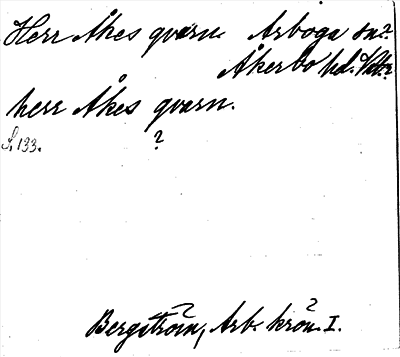 Herr Åkes qvarn Arboga sn?
Åkerbo hd. Vstm?
herr Åkes qvarn.
S. 133. ?
Bergström, Arb. krön. I.